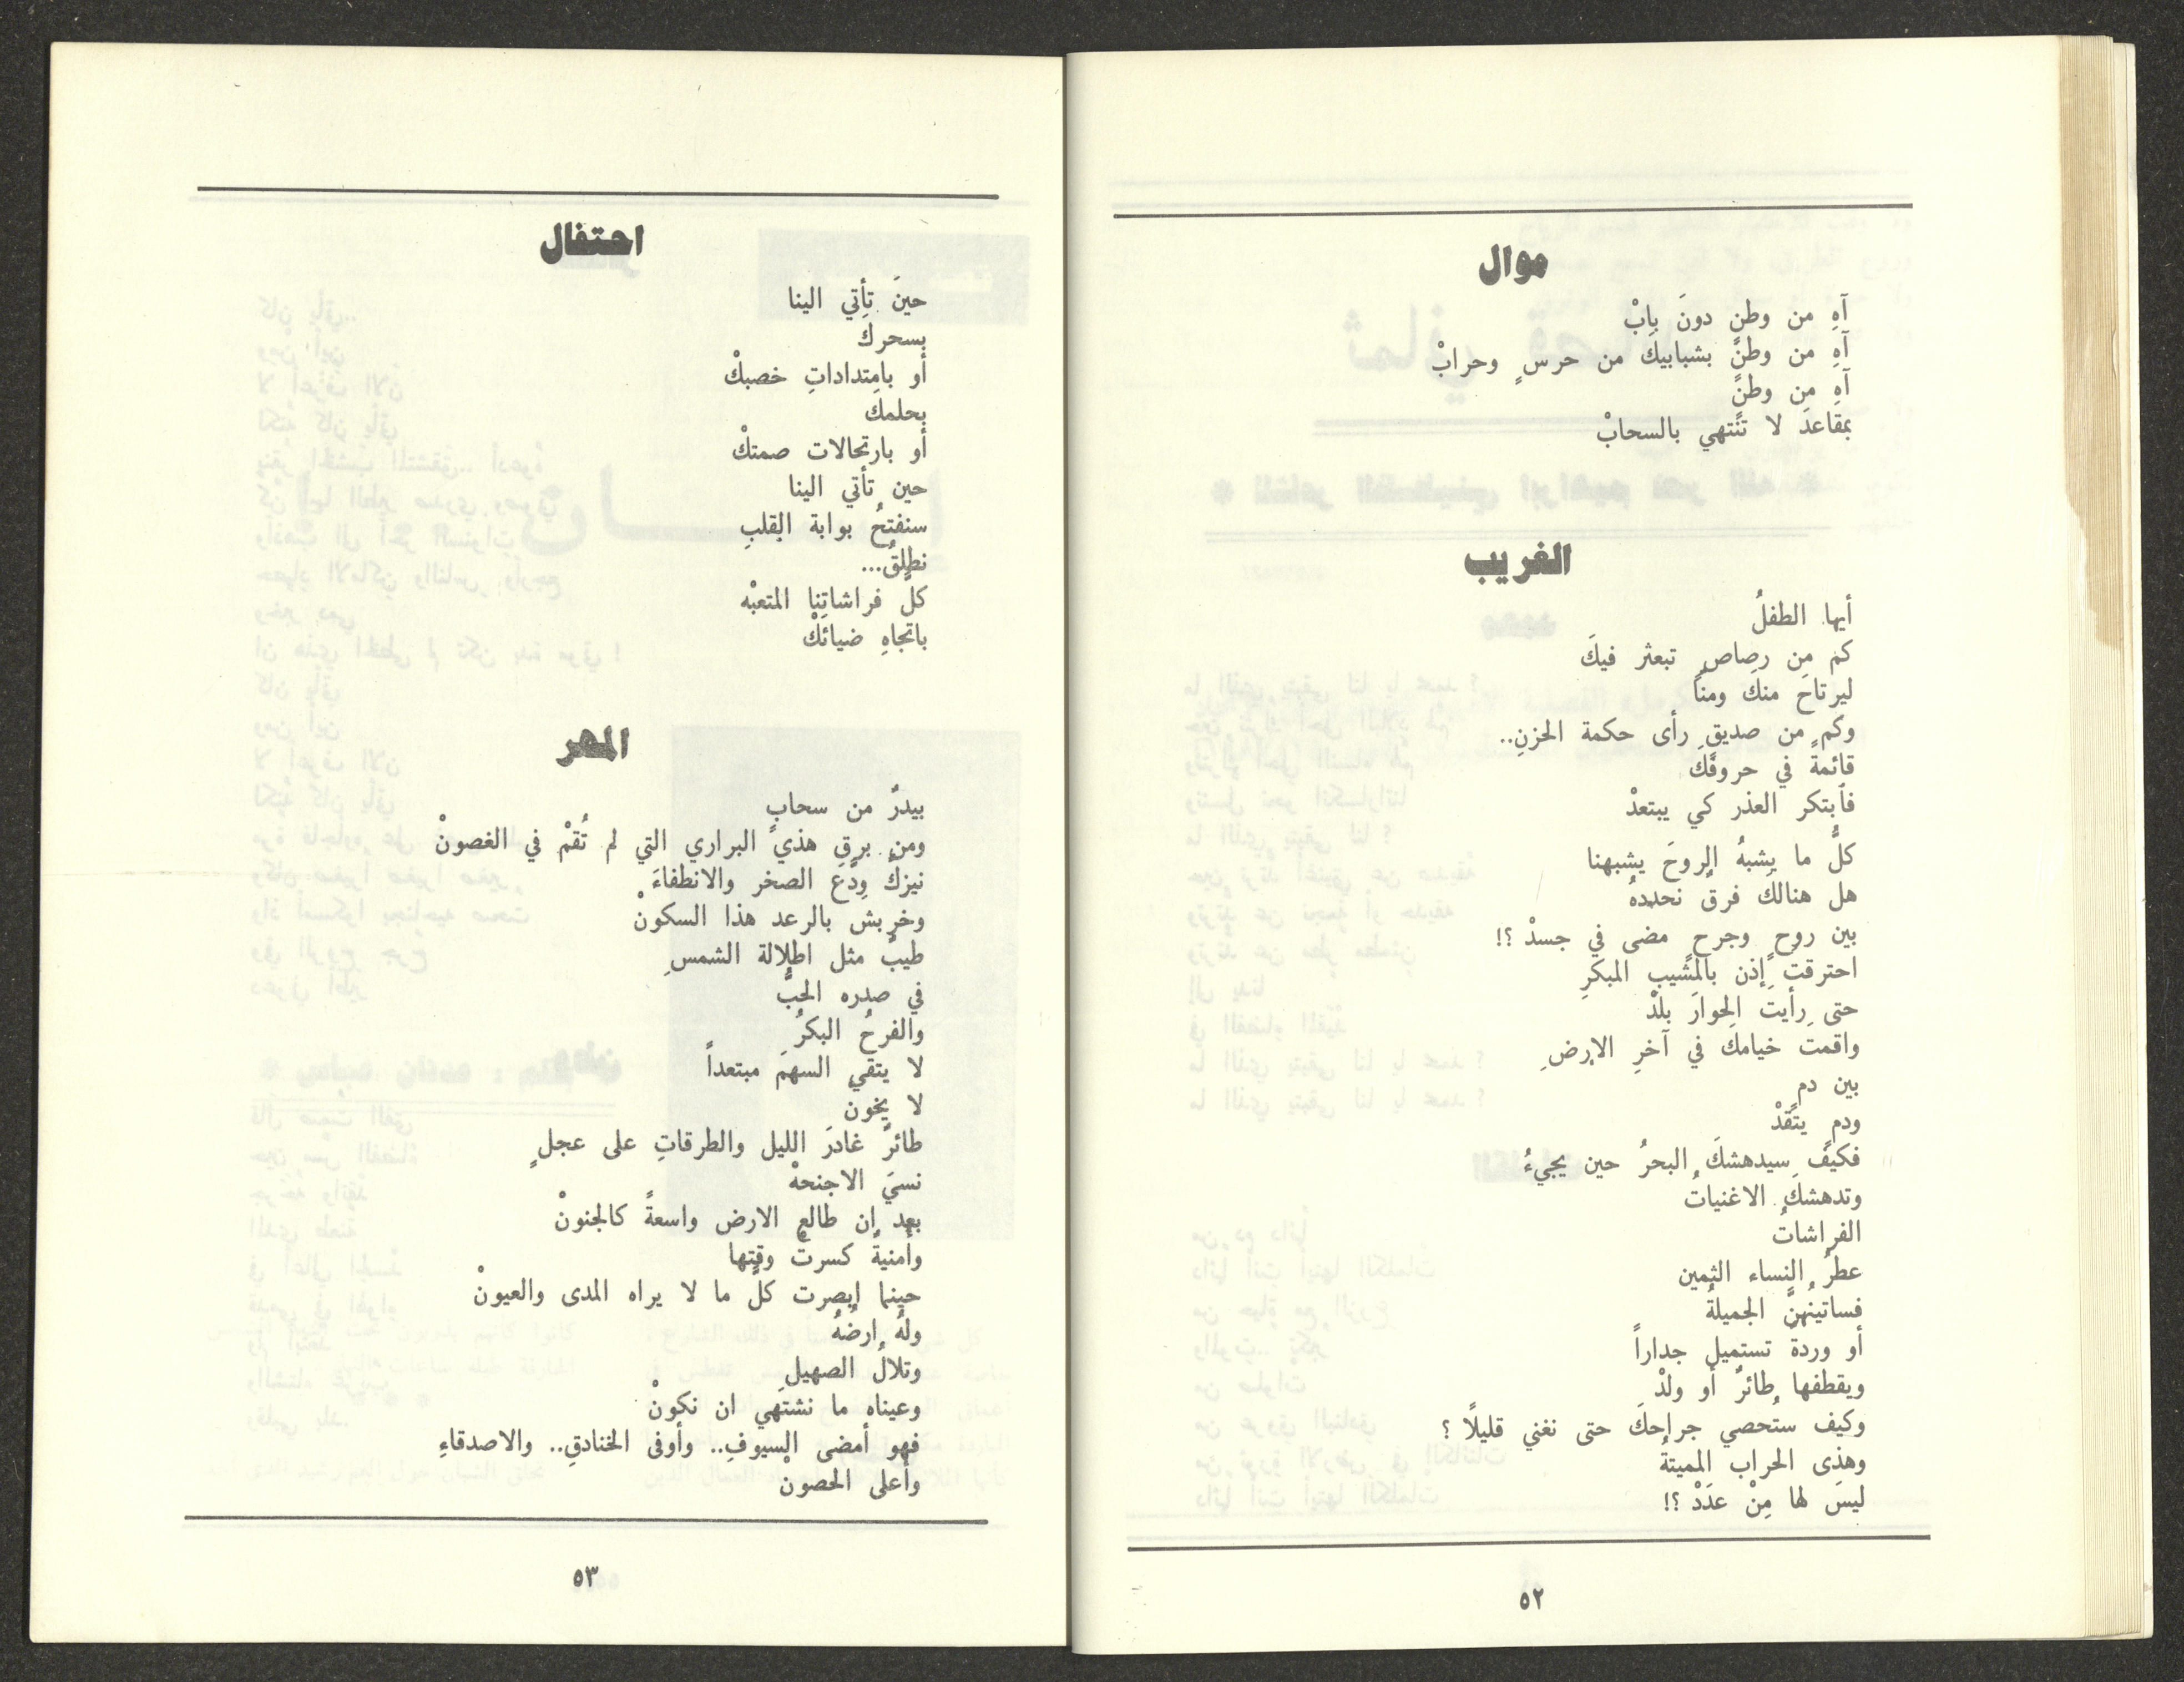 موال
آهِ من وطنٍ دونَ بابْ
آهِ من وطنٍ بشبابيك من حرسٍ وحرابْ
آهِ من وطنٍ
بمقاعدَ لا تنتهي بالسحابْ
الغريب
أيها الطفلُ
كم مِن رصاصٍ تبعثر فيكَ
ليرتاحَ منكَ ومنا
وكم من صديقٍ رأى حكمة الحزنِ..
قائمةً في حروفكَ
فأبتكر العذر كي يبتعدْ
كلُّ ما يشبهُ الروحَ يشبهنا
هل هنالك فرقٌ نحددهُ
بين روحٍ وجرحٍ مضى في جسدْ ؟!
احترقتَ إذن بالمشيبِ المبكرِ
حتى رأيتَ الحوارَ بلدْ
واقمتَ خيامكَ في آخرِ الارضِ
بين دمٍ
ودمٍ يتَّقدْ
فكيفَ سيدهشكَ البحرُ حين يجيءُ
وتدهشكَ الاغنياتُ
الفراشاتُ
عطرُ النساء الثمين
فساتينُهنَّ الجميلةُ
أو وردةٌ تستميل جداراً
ويقطفها طائرٌ أو ولدْ
وكيف ستُحصي جراحكَ حتى نغني قليلاً ؟
وهذى الحراب المميتةُ
ليسَ لها مِنْ عدَدْ ؟!
٥٢
احتفال
حينَ تأتي الينا
بسحركَ
أو بامتداداتِ خصبكْ
بحلمكَ
أو بارتحالات صمتكْ
حين تأتي الينا
سنفتحُ بوابة القلبِ
نطلقُ...
كلَّ فراشاتنا المتعبْه
باتجاهِ ضيائكْ
المهر
بيدرٌ من سحابٍ
ومن برقِ هذي البراري التي لم تُقمْ في الغصونْ
نيزكٌ وِدَّعَ الصخر والانطفاءَ
وخربش بالرعد هذا السكونْ
طيبٌ مثل اطلالة الشمسِ
في صدره الحبُّ
والفرحُ البكرُ
لا يتقي السهمَ مبتعداً
لا يخونْ
طائرٌ غادرَ الليل والطرقاتِ على عجلٍ
نسيَ الاجنحهْ
بعد ان طالع الارض واسعةً كالجنونْ
وأمنيةً كسرتْ وقتها
حينما ابصرت كلَّ ما لا يراه المدى والعيونْ
ولهُ ارضُهُ
وتلالُ الصهيلِ
وعيناه ما نشتهي ان نكونْ
فهو أمضى السيوفِ.. وأوفى الخنادقِ.. والاصدقاءِ
وأعلى الحصونْ
٥٣